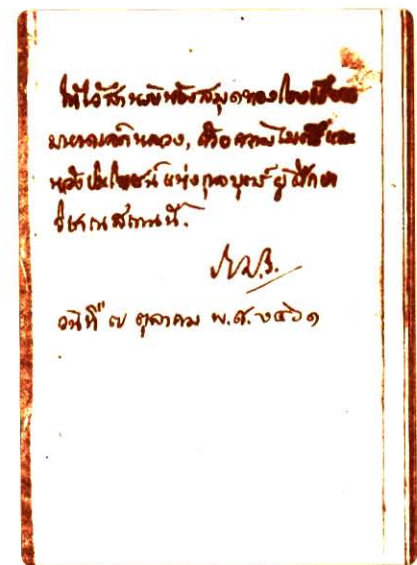 ให้ไว้สำหรับห้องสมุดของโรงเรียน
มหาดเล็กหลวง, ด้วยความไมตรีและ
หวังประโยชน์แห่งกุลบุตร์ผู้ศึกษา
วิชาณสถานนี้.
ร.ร.
วันที่ ๗ ตุลาคม พ.ศ. ๒๔๖๑